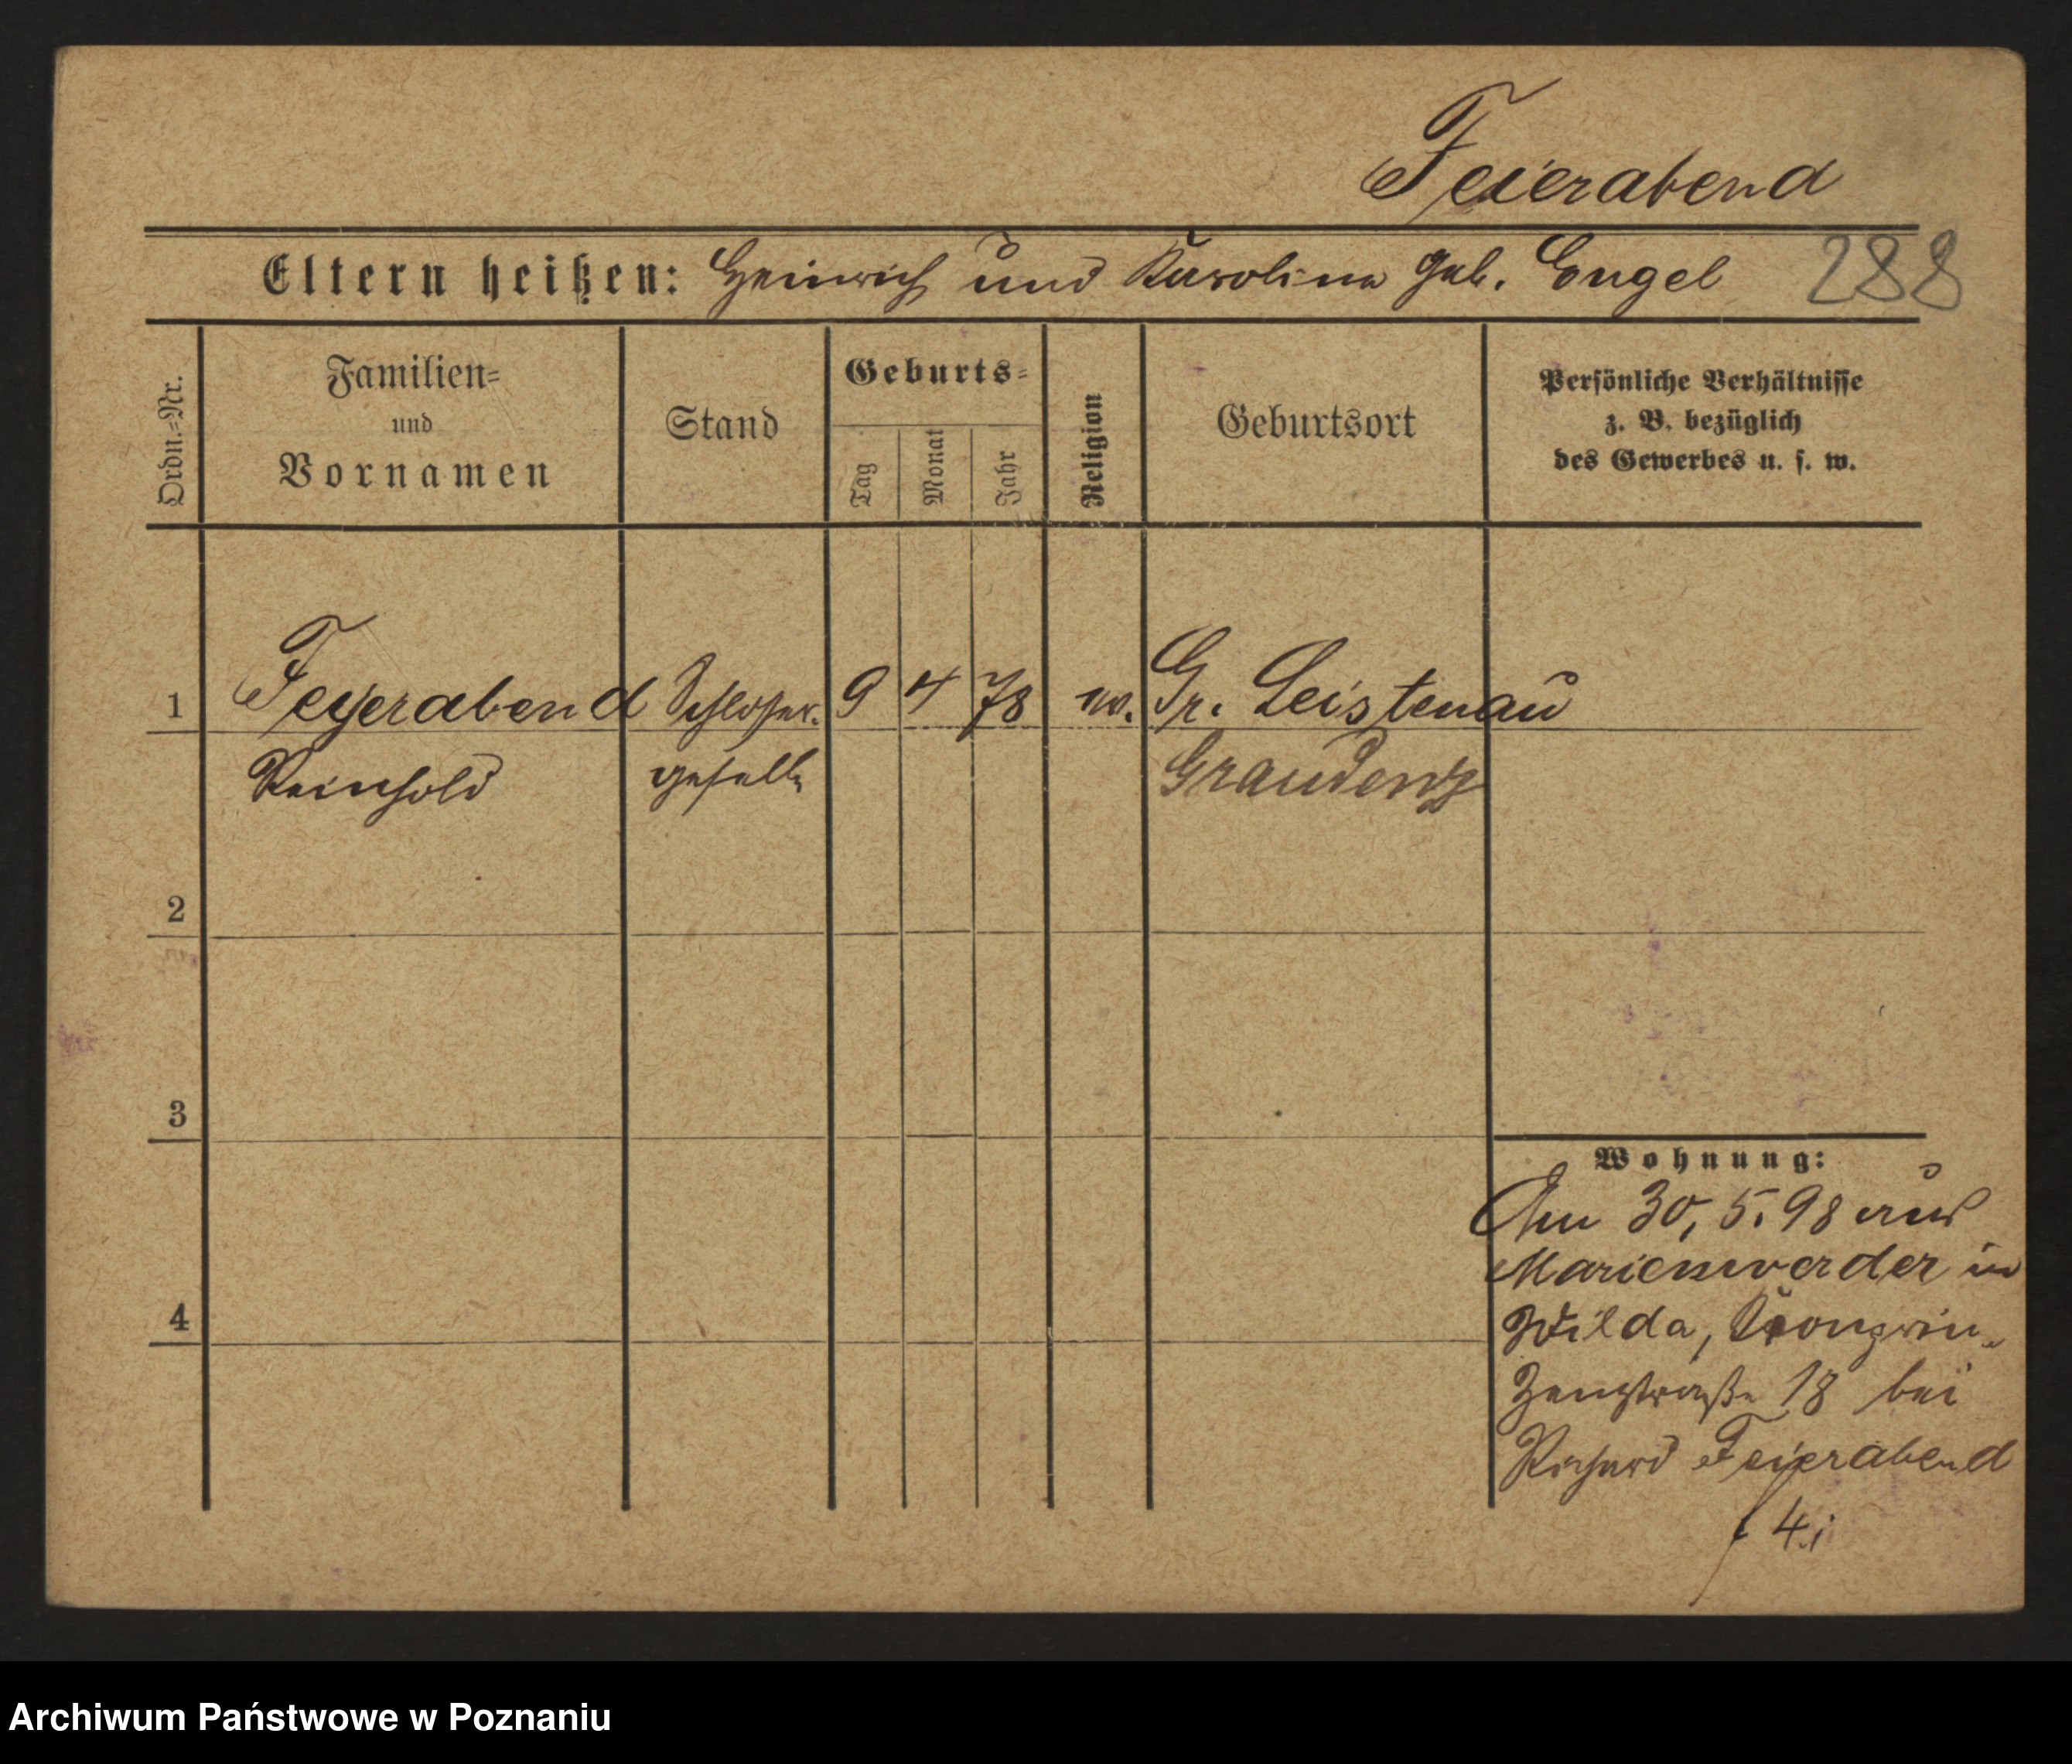 Feierabend
Eltern heißen: Heinrich und Karoline geb. Engel 288
Ordn.=Nr.
Familien=
und
Vornamen
Stand
Geburts=
Tag
Monat
Jahr
Religion
Geburtsort
Persönliche Verhältnisse
z. B. bezüglich
des Gewerbes u. s. w.
1 Feyerabend Schlosser- 9 4 78 ev. Gr. Leistenau
Reinhold geselle Graudenz
2
3
4
Wohnung:
Am 30, 5. 98 aus
Marienwerder in
Wilda, Kronprin-
zenstraße 18 bei
Richard Feierabend
Archiwum Państwowe w Poznaniu